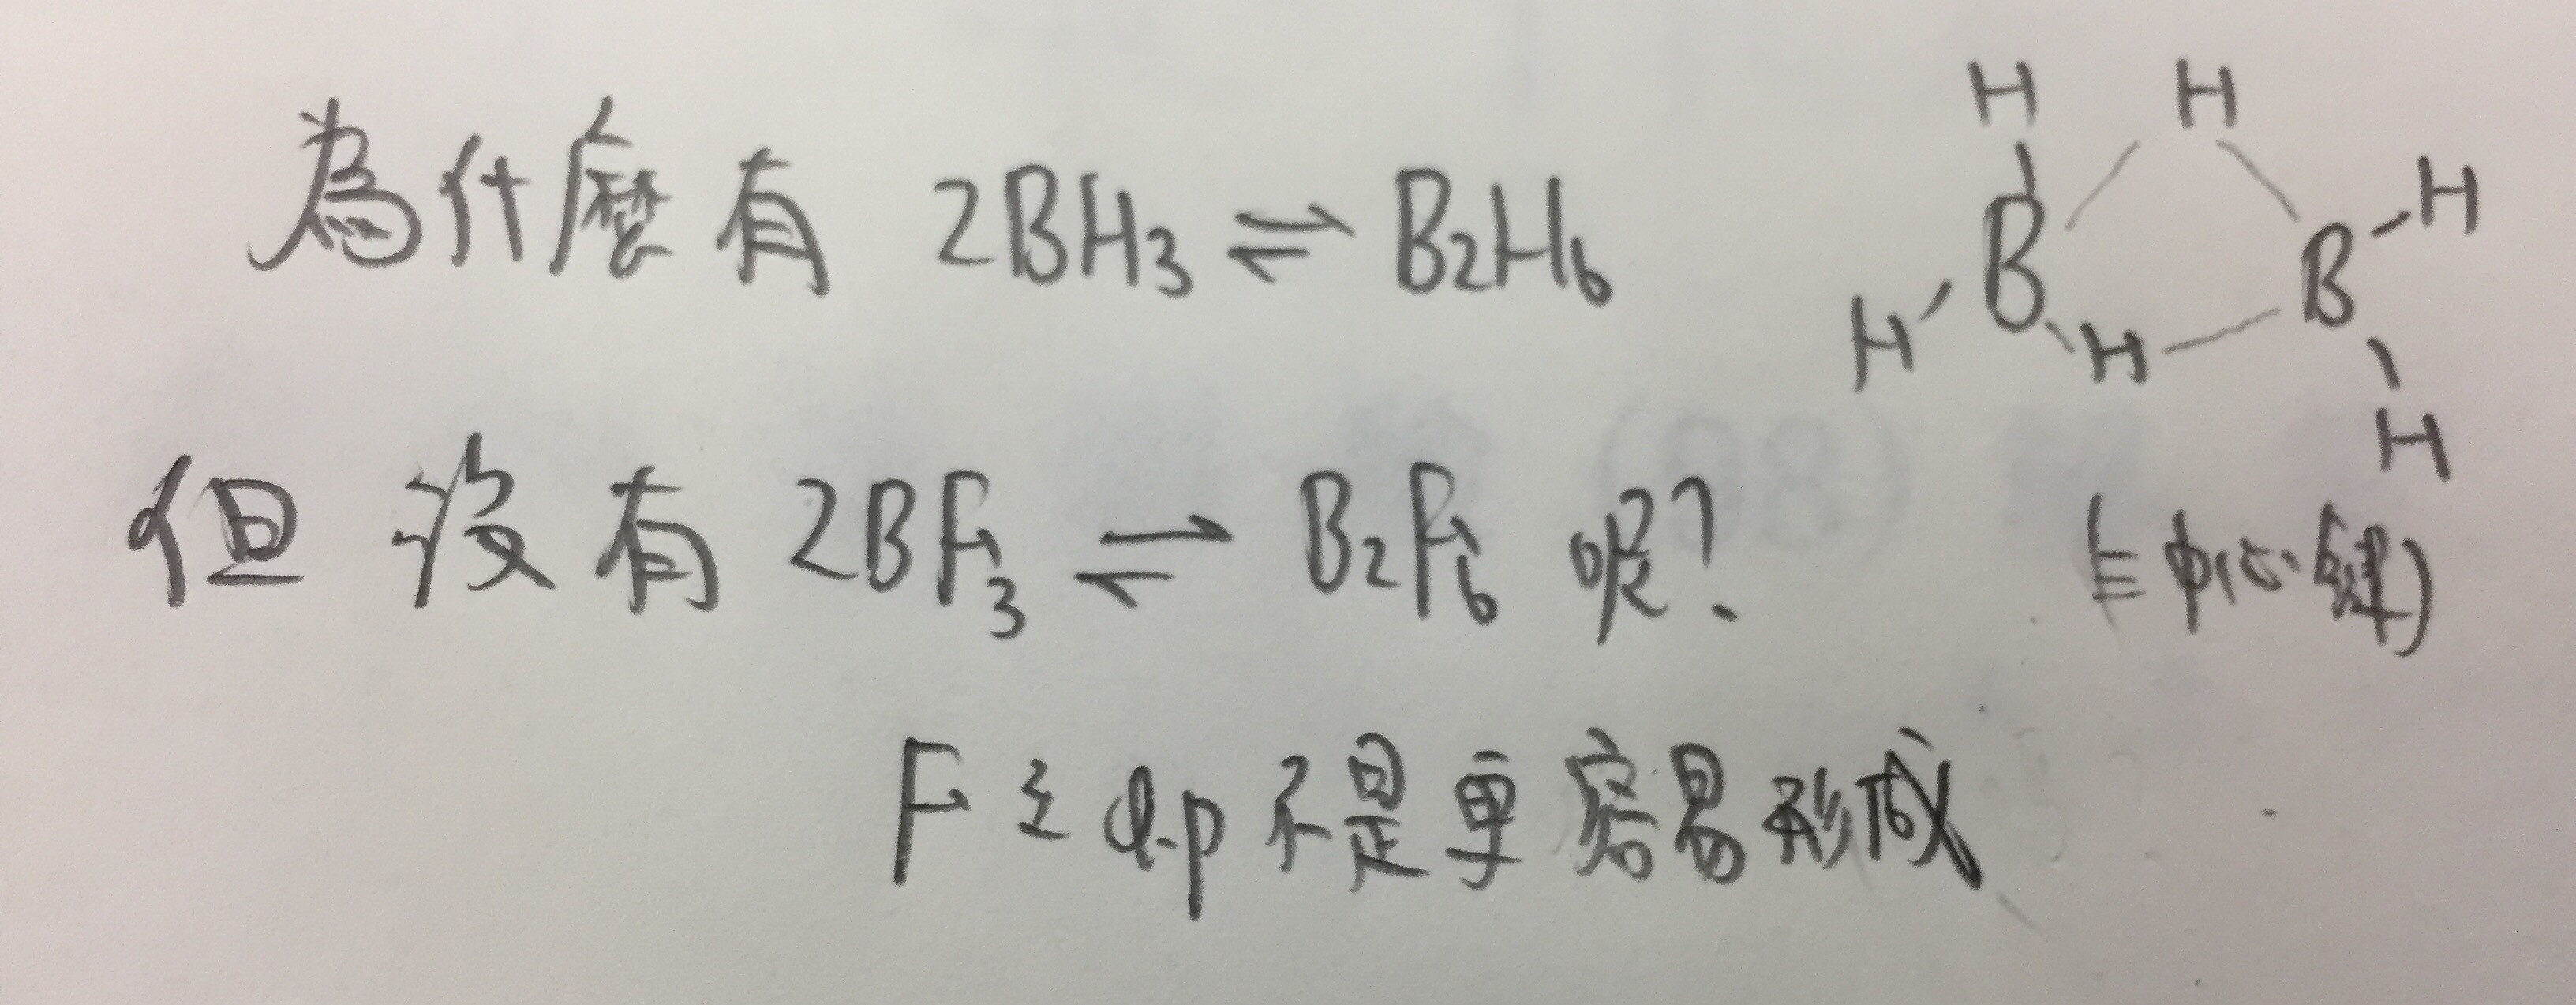 為什麼有 2BH3 ⇌ B2H6
但沒有 2BF3 ⇌ B2F6 呢?
F之l.p不是更容易形成
H H
B H
H H B
H
(三中心鍵)